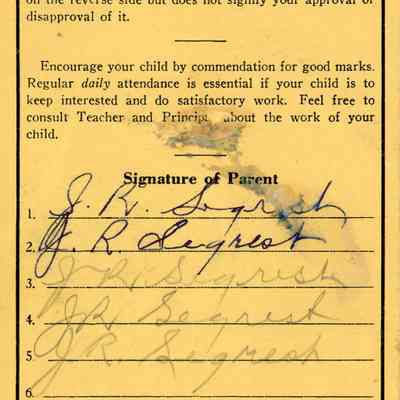 on the reverse side but does not signify your approval or
disapproval of it.
Encourage your child by commendation for good marks.
Regular daily attendance is essential if your child is to
keep interested and do satisfactory work. Feel free to
consult Teacher and Princip about the work of your
child.
Signature of Parent
1. J. R. Segrest
2. J. R. Segrest
3. J R Segrest
4. J R Segrest
5. J. R. Segrest
6.